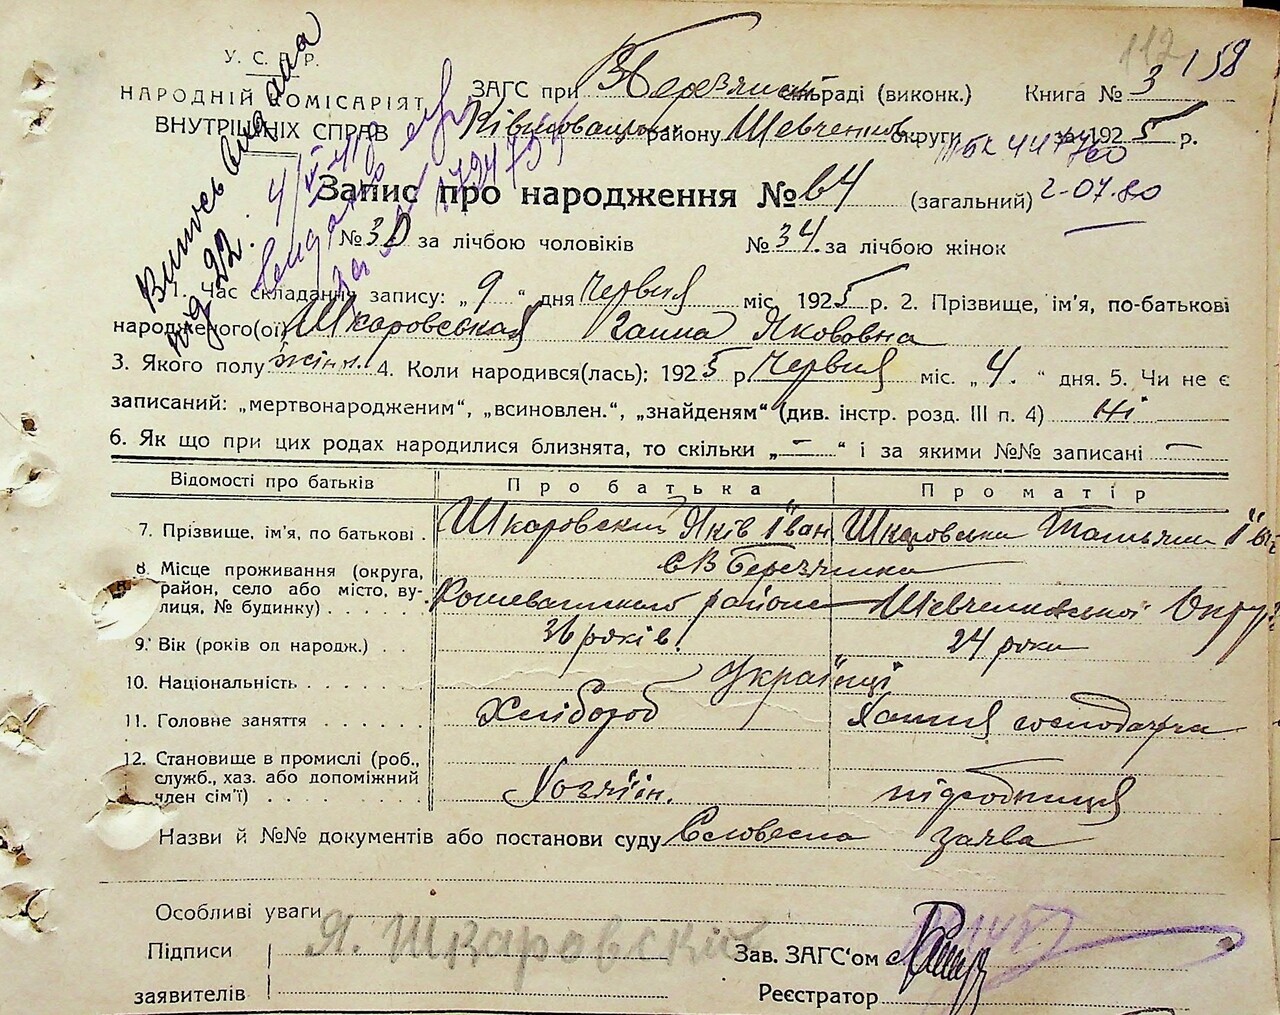 112 158
У. С. Р. Р.
НАРОДНІЙ КОМІСАРІЯТ
ВНУТРІШНІХ СПРАВ
ЗАГС при В Березянск сільраді (виконк.) Книга № 3
району Шевченков округи за 1925 р.
447760
2-07.80
Запис про народження № 64 (загальний)
№ 30 за лічбою чоловіків № 34. за лічбою жінок
1. Час складання запису: „ 9 “ дня Червня міс. 1925 р. 2. Прізвище, ім'я, по-батькові
народженого(ої) Шкаровская Ганна Якововна
3. Якого полу жінн. 4. Коли народився(лась); 1925 р. Червня міс. „ 4. “ дня. 5. Чи не є
записаний: „мертвонародженим“, „всиновлен.“, „знайденям“ (див. інстр. розд. III п. 4) Ні
6. Як що при цих родах народилися близнята, то скільки „ — “ і за якими №№ записані —
Відомості про батьків Про батька Про матір
7. Прізвище, ім'я, по батькові . Шкаровский Яків Іван Шкаровська Татьяна
8. Місце проживання (округа, район, село або місто, вулиця, № будинку) . . . . . с В Березянка
району Шевченковської Округ
9. Вік (років од народж.) . . 36 років. 24 роки
10. Національність . . . . . . Українці
11. Головне заняття . . . . . Хлібороб Хатня господарка
12. Становище в промислі (роб., служб., хаз. або допоміжний член сім'ї) . . . . . . . . Хозяїін. підсобниця
Назви й №№ документів або постанови суду Словесна заява
Особливі уваги
Підписи Я. Шкаровский Зав. ЗАГС'ом
заявителів Реєстратор